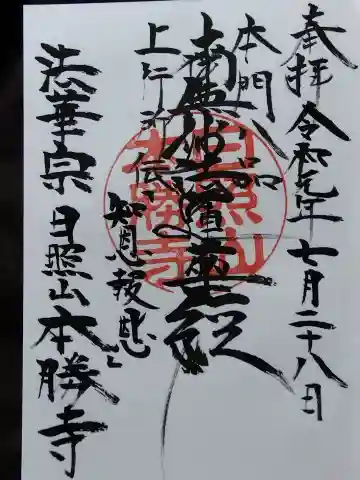 奉拝 令和元年七月二十八日
本門八品
南無妙法蓮華経
上行所伝
知恩報恩
法華宗 日照山本勝寺
日照山
本勝寺